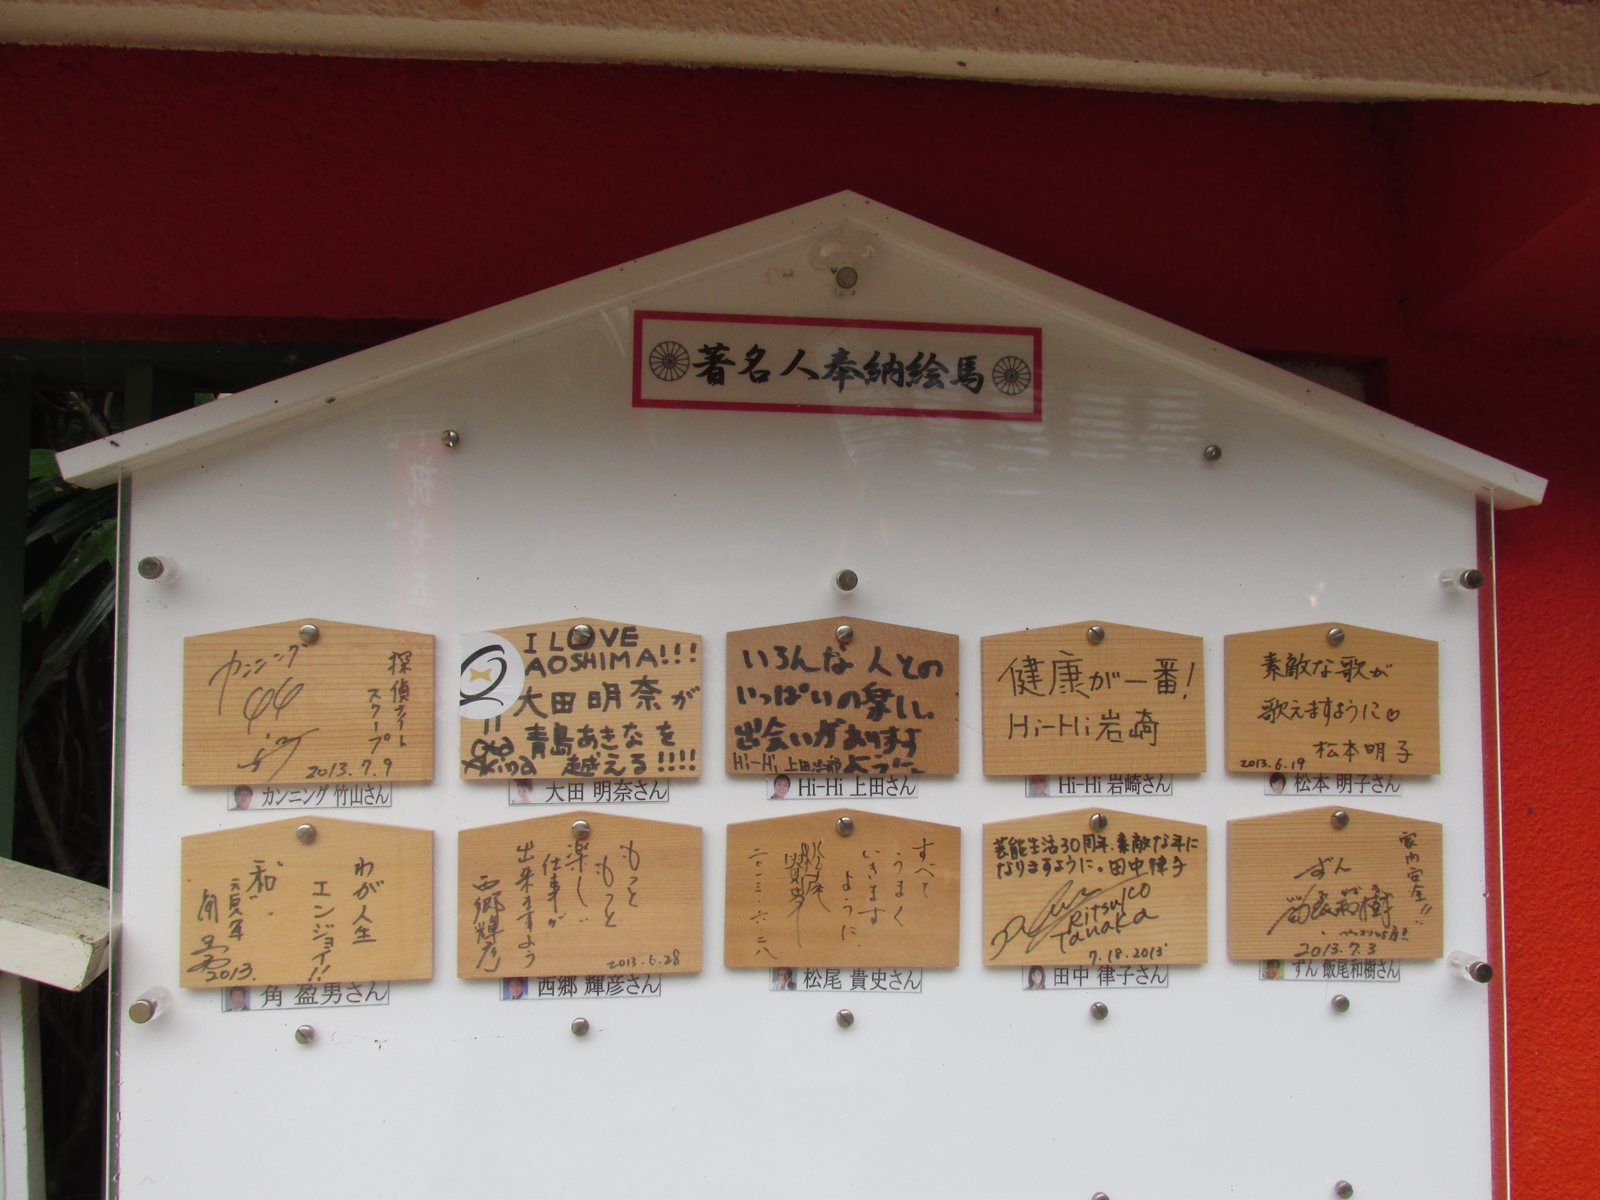 著名人奉納絵馬
カンニング
竹山
探偵ナイト
スクープ
2013.7.9
カンニング 竹山さん
I LOVE
AOSHIMA!!!
大田明奈が
青島あきなを
越える!!!!
大田 明奈さん
いろんな人との
いっぱいの楽しい
出会いがあります
ように
Hi-Hi 上田浩二郎
Hi-Hi 上田さん
健康が一番!
Hi-Hi岩崎
Hi-Hi 岩崎さん
素敵な歌が
歌えますように♡
松本明子
2013.6.19
松本 明子さん
わが人生
エンジョイ!!
和
2013.
角 盈男さん
もっと
もっと
楽しい
仕事が
出来ますよう
西郷輝彦
2013.6.28
西郷 輝彦さん
すべて
うまく
いきます
ように
二〇一三.六.二八
松尾 貴史さん
芸能生活30周年、素敵な年に
なりますように。田中律子
Ritsuko
Tanaka
7.18.2013
田中 律子さん
家内安全!!
ずん
飯尾和樹
2013.7.3
ずん 飯尾和樹さん